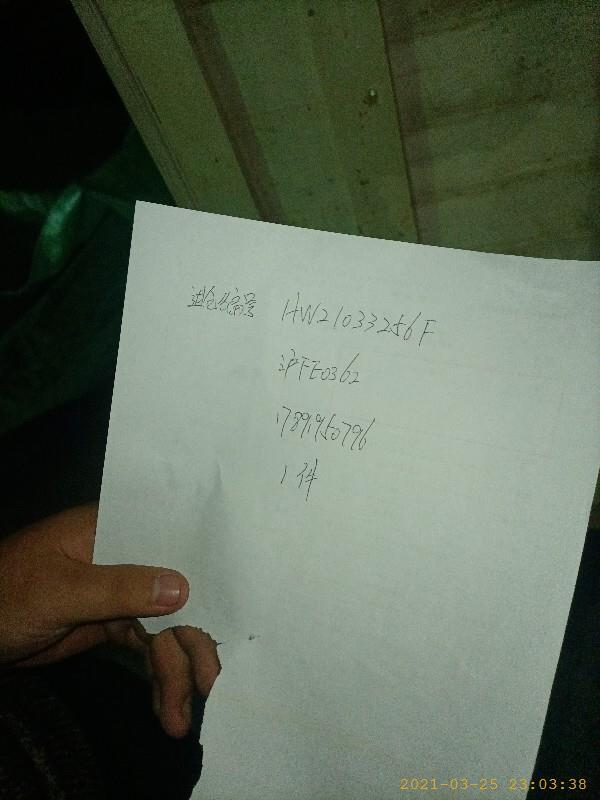 进仓编号 HW21033256F
沪FE0362
17891950796
1件
2021-03-25 23:03:38